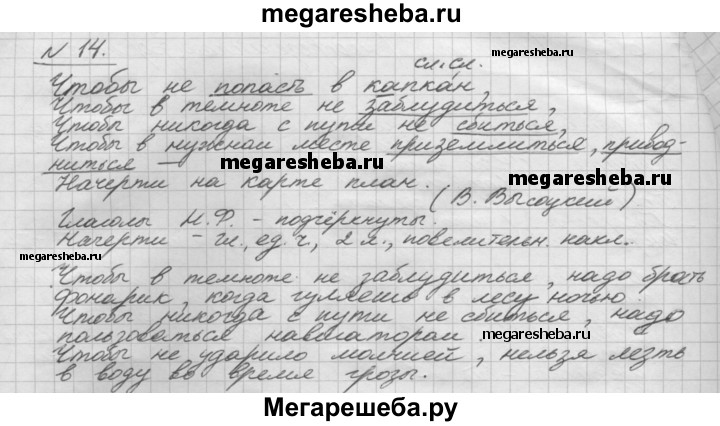 megaresheba.ru
N 14.
сл.сл.
megaresheba.ru
Чтобы не попасть в капкан,
Чтобы в темноте не заблудиться,
Чтобы никогда с пути не сбиться,
megaresheba.ru
Чтобы в нужном месте приземлиться, привод-
ниться —
megaresheba.ru
Начерти на карте план.
megaresheba.ru
(В. Высоцкий)
Глаголы Н.Ф. - подчёркнуты.
Начерти - гл., ед.ч, 2 л., повелительн. накл.
megaresheba.ru
Чтобы в темноте не заблудиться, надо брать
фонарик, когда гуляешь в лесу ночью.
Чтобы никогда с пути не сбиться, надо
пользоваться навигатором
megaresheba.ru
Чтобы не ударило молнией, нельзя лезть
в воду во время грозы.
Мегарешеба.ру